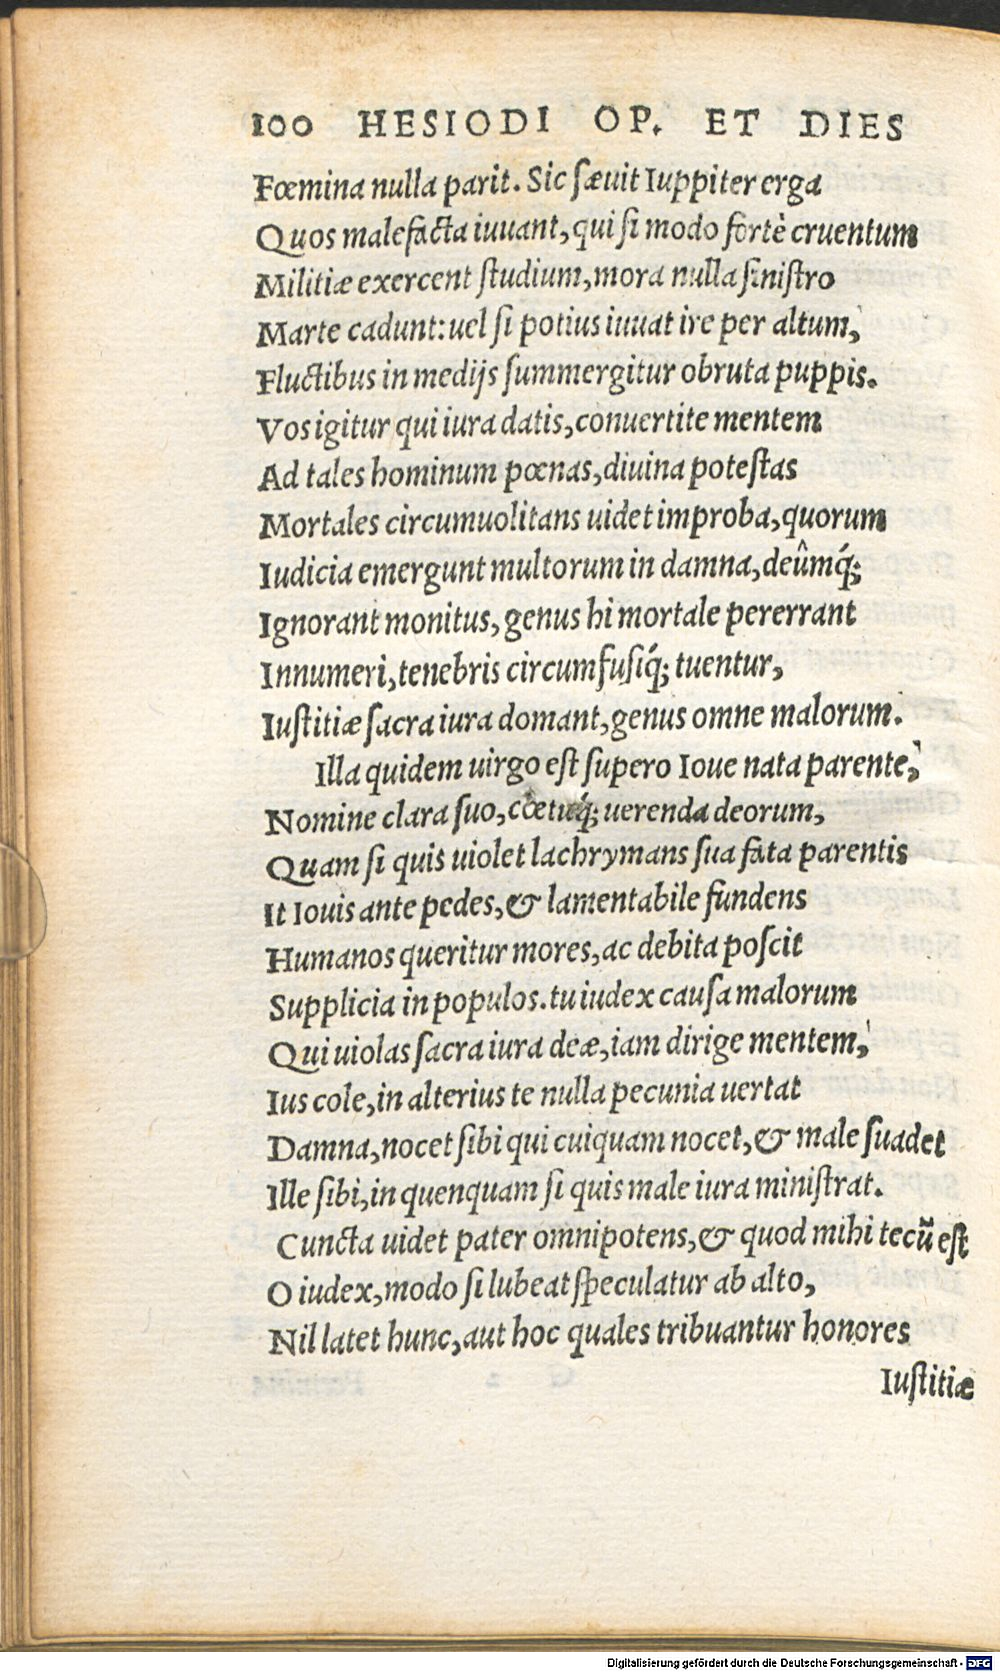 100 HESIODI OP. ET DIES
Fœmina nulla parit. Sic ſæuit Iuppiter erga
Quos malefacta iuuant, qui ſi modo fortè cruentum
Militiæ exercent ſtudium, mora nulla ſiniſtro
Marte cadunt: uel ſi potius iuuat ire per altum,
Fluctibus in medijs ſummergitur obruta puppis.
Vos igitur qui iura datis, conuertite mentem
Ad tales hominum pœnas, diuina poteſtas
Mortales circumuolitans uidet improba, quorum
Iudicia emergunt multorum in damna, deûmq́;
Ignorant monitus, genus hi mortale pererrant
Innumeri, tenebris circumfuſiq́; tuentur,
Iuſtitiæ ſacra iura domant, genus omne malorum.
Illa quidem uirgo eſt ſupero Ioue nata parente,
Nomine clara ſuo, cœtuq́; uerenda deorum,
Quam ſi quis uiolet lachrymans ſua fata parentis
It Iouis ante pedes, & lamentabile fundens
Humanos queritur mores, ac debita poſcit
Supplicia in populos. tu iudex cauſa malorum
Qui uiolas ſacra iura deæ, iam dirige mentem,
Ius cole, in alterius te nulla pecunia uertat
Damna, nocet ſibi qui cuiquam nocet, & male ſuadet
Ille ſibi, in quenquam ſi quis male iura miniſtrat.
Cuncta uidet pater omnipotens, & quod mihi tecũ eſt
O iudex, modo ſi lubeat ſpeculatur ab alto,
Nil latet hunc, aut hoc quales tribuantur honores
Iuſtitiæ
Digitalisierung gefördert durch die Deutsche Forschungsgemeinschaft - DFG